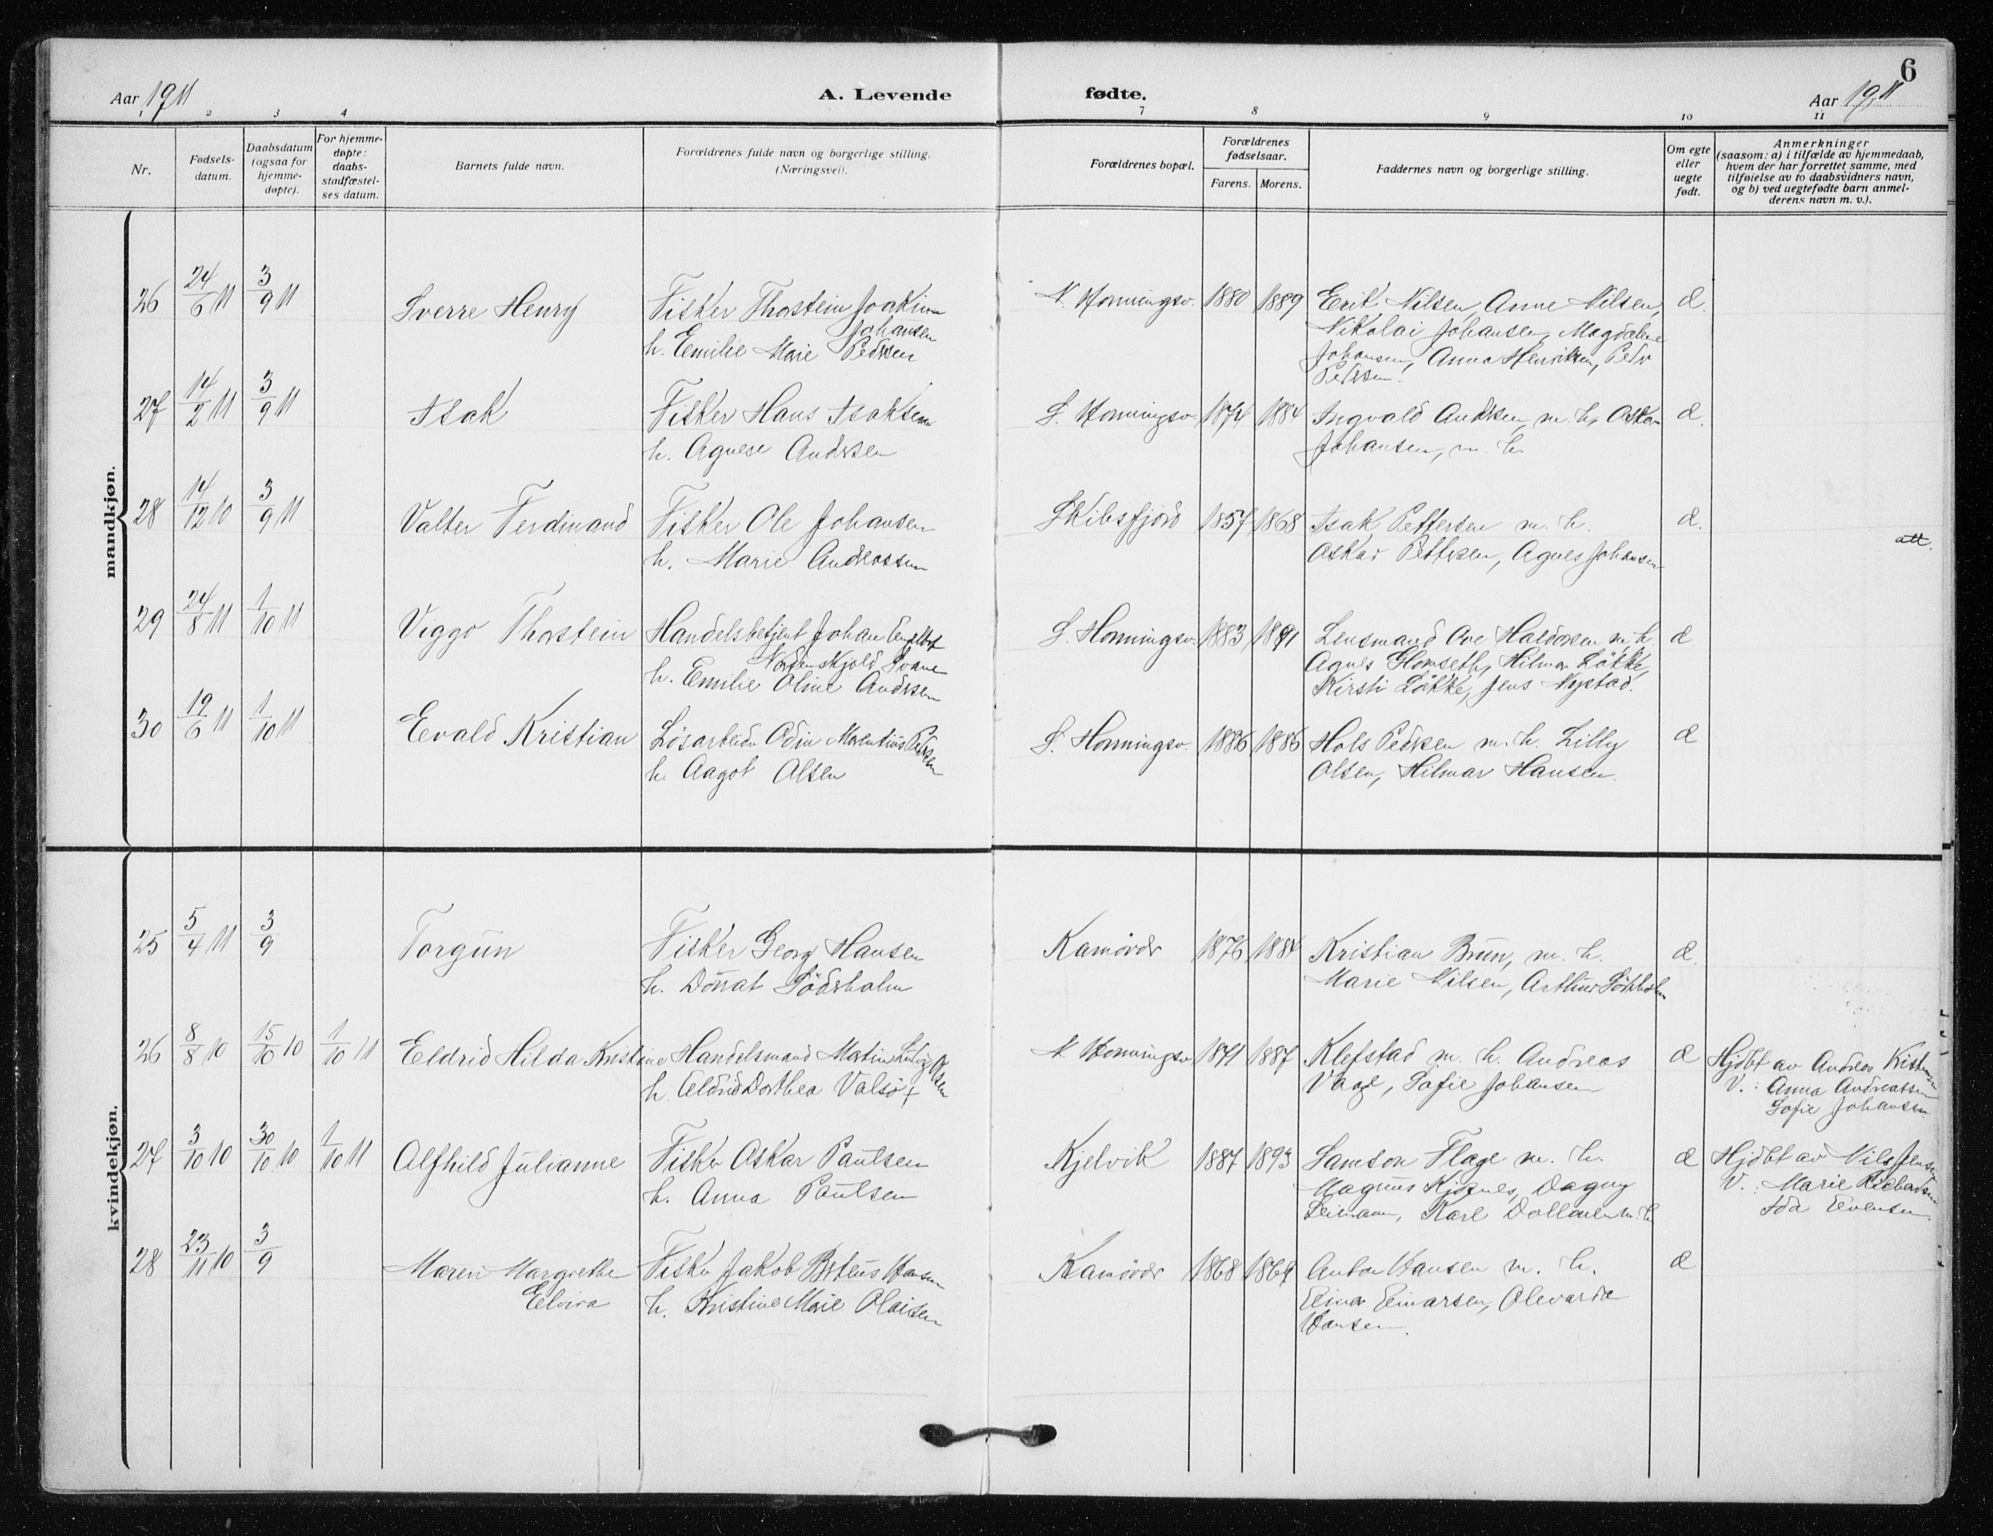 6
Aar 1911
A. Levende
fødte.
Aar 1911
1 2 3 4 7 8 9 10 11
Nr.
Fødsels-
datum.
Daabsdatum
(ogsaa for
hjemme-
døpte).
For hjemme-
døpte:
daabs-
stadfæstel-
ses datum.
Barnets fulde navn.
Forældrenes fulde navn og borgerlige stilling.
(Næringsvei).
Forældrenes bopæl.
Forældrenes
fødselsaar.
Farens. Morens.
Faddernes navn og borgerlige stilling.
Om egte
eller
uegte
født.
Anmerkninger
(saasom: a) i tilfælde av hjemmedaab,
hvem der har forrettet samme, med
tilføielse av to daabsvidners navn,
og b) ved uegtefødte barn anmel-
derens navn m. v.).
mandkjøn.
26 24/6 11 3/9 11 Sverre Henry Fisker Thorstein Joakim N. Honningsv. 1880 1889 Erik Nilsen, Anne Nilsen, Æ.
Johansen Nikolai Johansen, Magdalene
h. Emilie Marie Pedersen Johansen, Anna Henriksen, Peder
Pedersen.
27 14/2 11 3/9 11 Isak Fisker Hans Isaksen S. Honningsv. 1874 1884 Ingvald Andersen m. h, Oskar Æ.
h. Agnese Andersen Johansen, m. h.
28 14/12 10 3/9 11 Valter Ferdinand Fisker Ole Johansen Skibsfjord 1857 1868 Isak Pettersen m. h. Æ.
att.
h. Marie Andreassen Oskar Pettersen, Agnes Johansen
29 24/8 11 1/10 11 Viggo Thorstein Handelsbetjent Johan S. Honningsv. 1883 1891 Lensmand Ove Haldorsen m. h. Æ
Nordenskjold Svane Agnes Glomseth, Hilmar Løkke,
h. Emilie Oline Andersen Kirsti Løkke, Jens Nystad.
30 19/6 11 1/10 11 Evald Kristian Løsarbeider Odin Morentius Pedersen S. Honningsv. 1886 1886 Hals Pedersen m. h. Lilly Æ
h. Aagot Olsen Olsen, Hilmar Hansen.
kvindekjøn.
25 5/4 11 3/9 Torgun Fisker Georg Hansen Kamøvær 1876 1884 Kristian Brun, m. h. Æ.
h. Donat Söderholm Marie Nilsen, Arthur
26 8/8 10 15/10 10 1/10 11 Eldrid Hilda Kristine Handelsmand Martin Ludvig Olsen N. Honningsv 1871 1887 Klefstad m. h. Andreas Æ Hjdbt av Andreas
h. Eldrid Dorthea Valsø + Vage, Sofie Johansen V.: Anna Andreassen
Sofie Johansen
27 3/10 10 30/10 10 1/10 11 Alfhild Julianne Fisker Oskar Paulsen Kjelvik 1887 1893 Samson Flage m. h. Æ Hjdbt av Nils Jensen
h. Anna Paulsen Magnus Kjosnes, Dagny V.: Marie Richardsen
Leimann, Karl m. h Ida Evensen.
28 23/11 10 3/9 Maren Margrethe Fisker Jakob Hansen Kamøvær 1868 1869 Anton Hansen m. h. Æ
Elvira h. Kristine Marie Olaisen Einar Einarsen, Olevarda
Hansen.